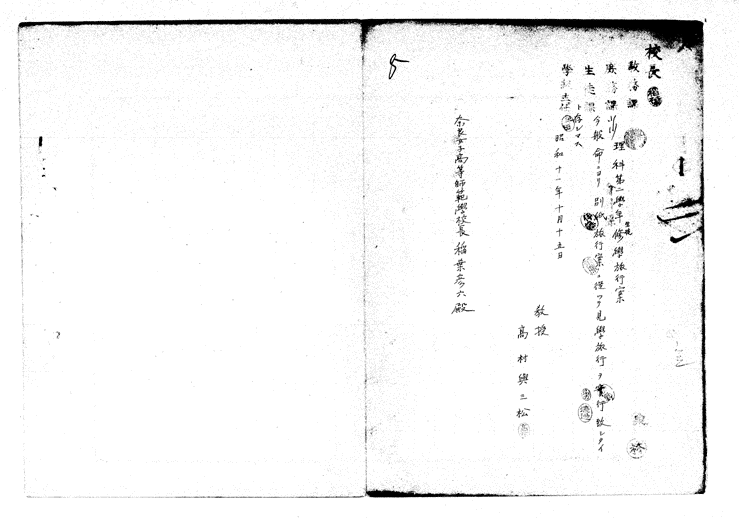 校長
教務課
庶務課
生徒課
學級主任
理科第二學年修學旅行案
今般命ニヨリ別紙旅行案ニ從ツテ見學旅行ヲ實行致シタイ
ト存シマス
昭和十一年十月十五日
教授
高村與三松
奈良女子高等師範學校長 稲葉彦六殿